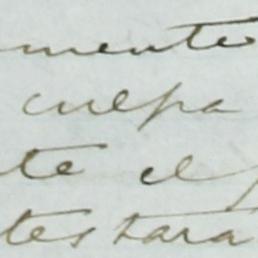 mente
culpa
te el
testara